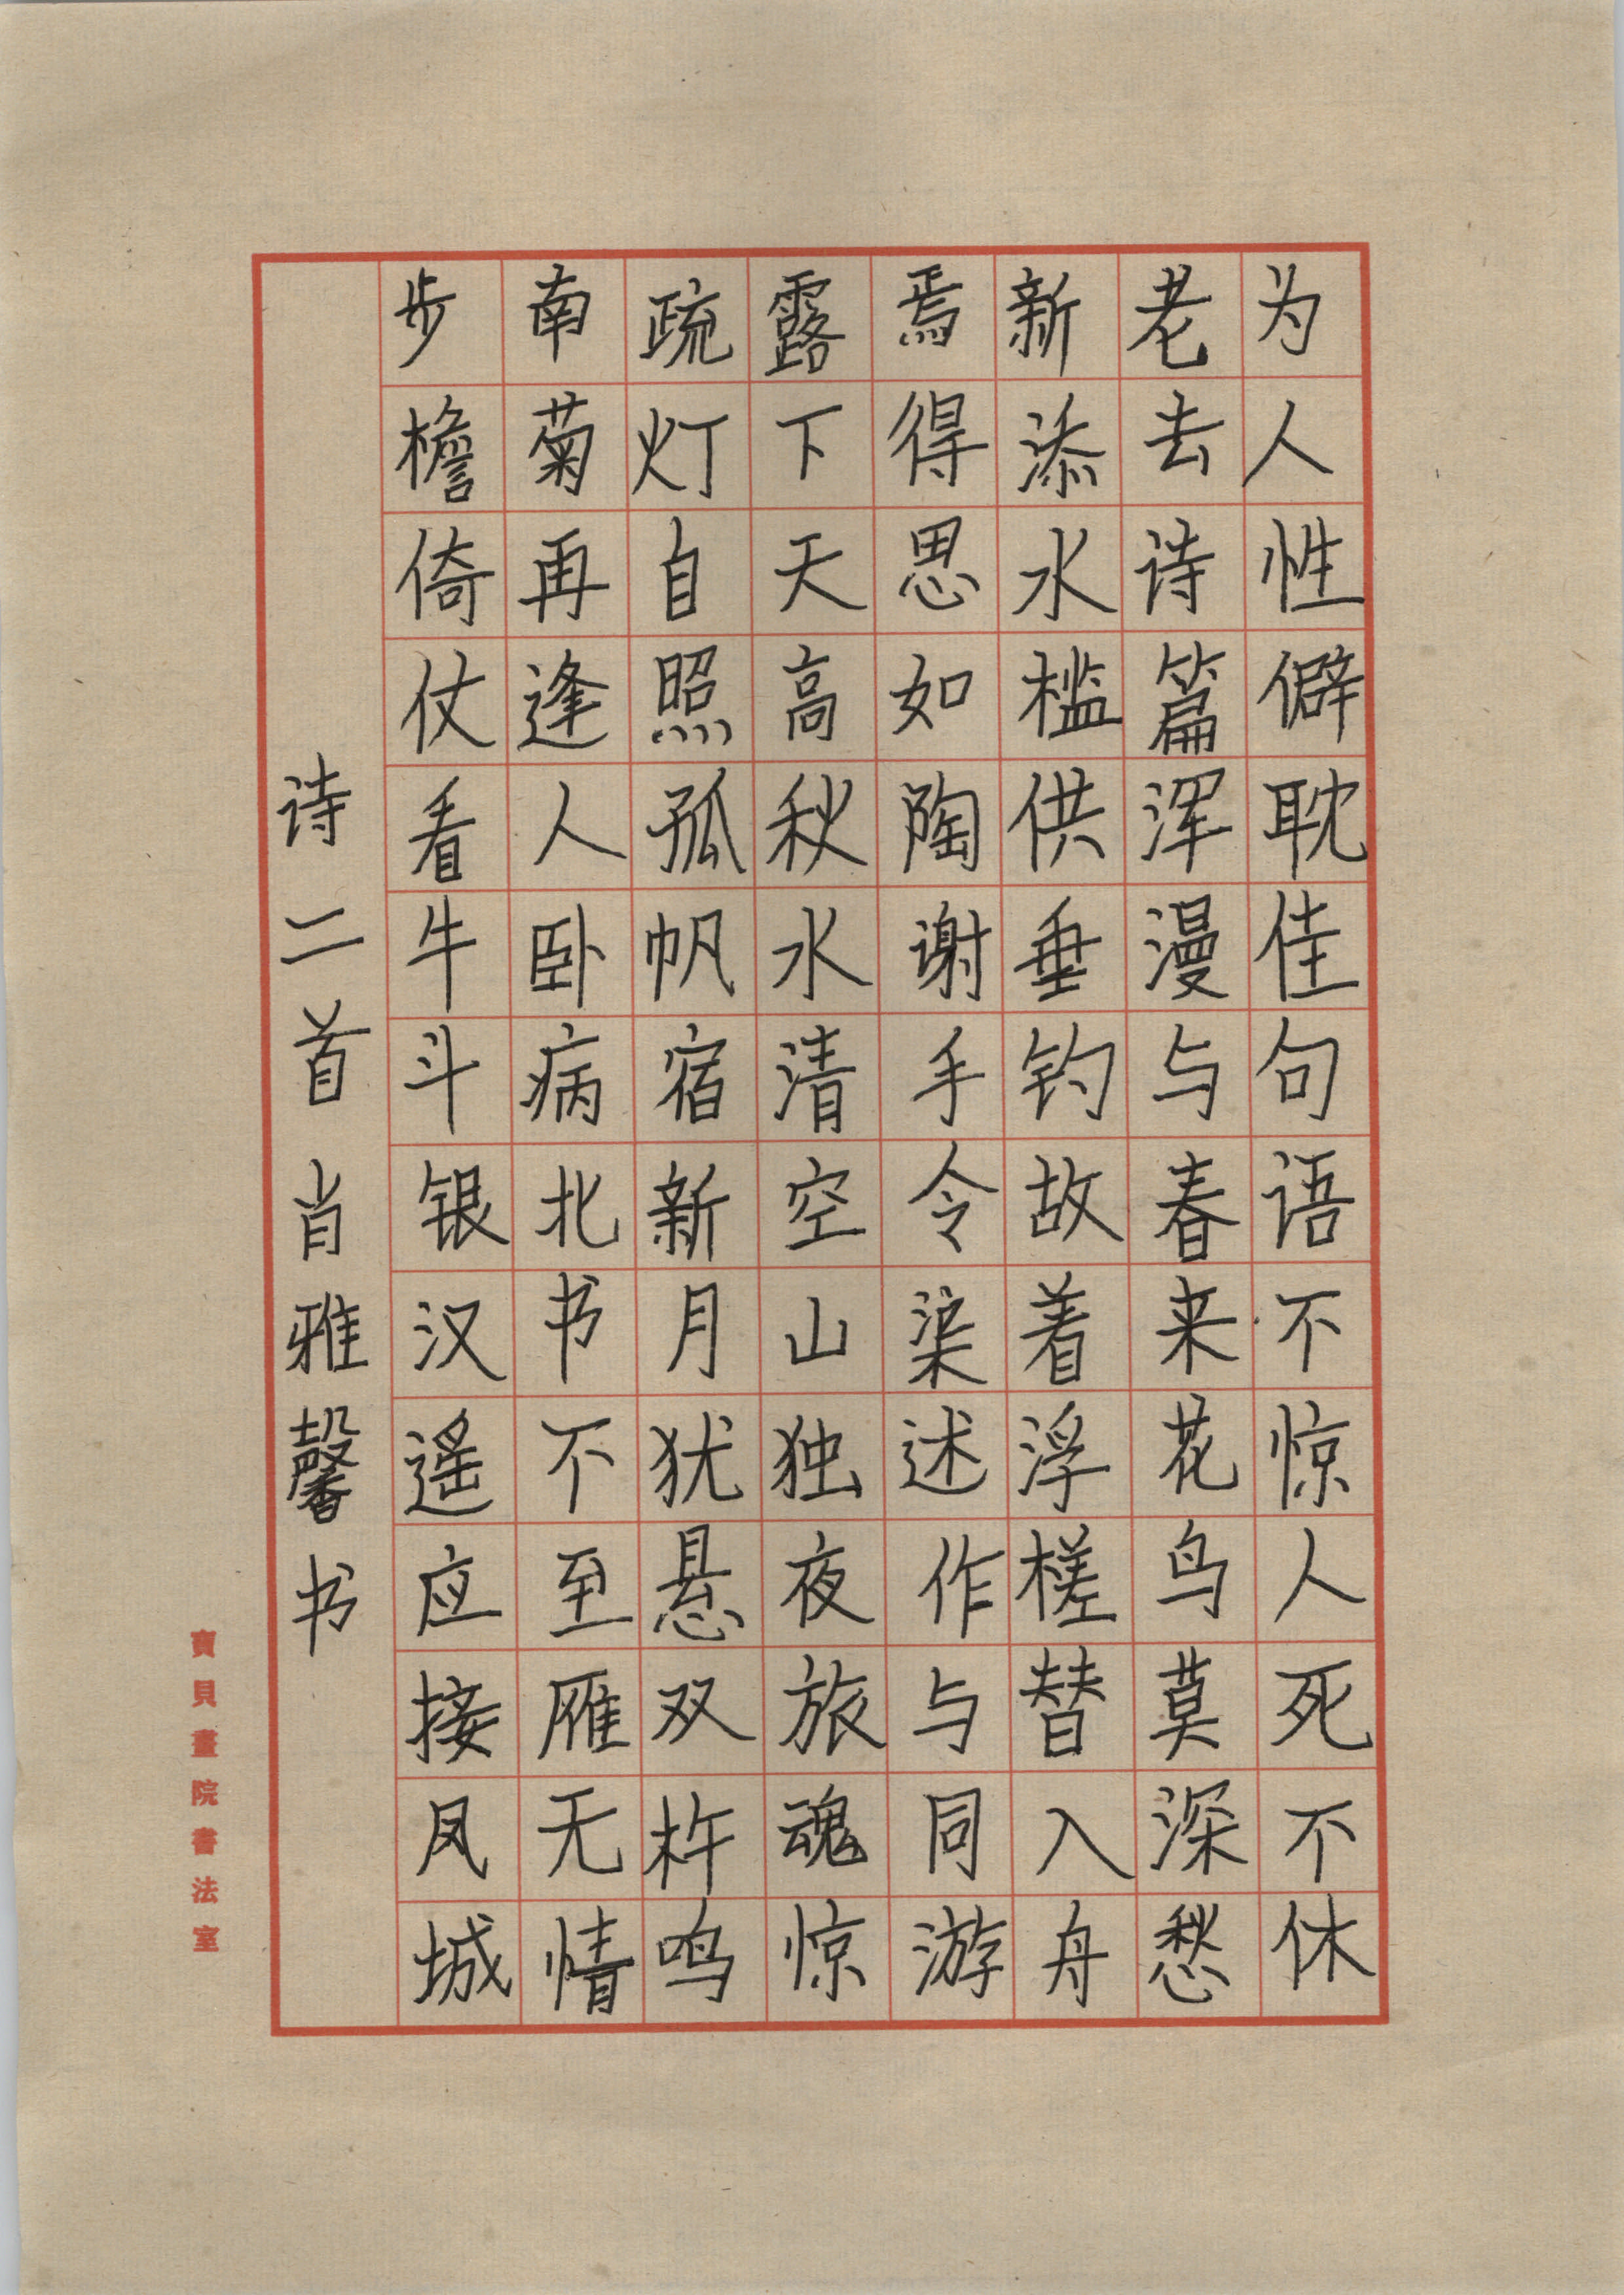 为人性僻耽佳句语不惊人死不休
老去诗篇浑漫与春来花鸟莫深愁
新添水槛供垂钓故着浮槎替入舟
焉得思如陶谢手令渠述作与同游
露下天高秋水清空山独夜旅魂惊
疏灯自照孤帆宿新月犹悬双杵鸣
南菊再逢人卧病北书不至雁无情
步檐倚仗看牛斗银汉遥应接凤城
诗二首肖雅馨书
寶貝畫院書法室